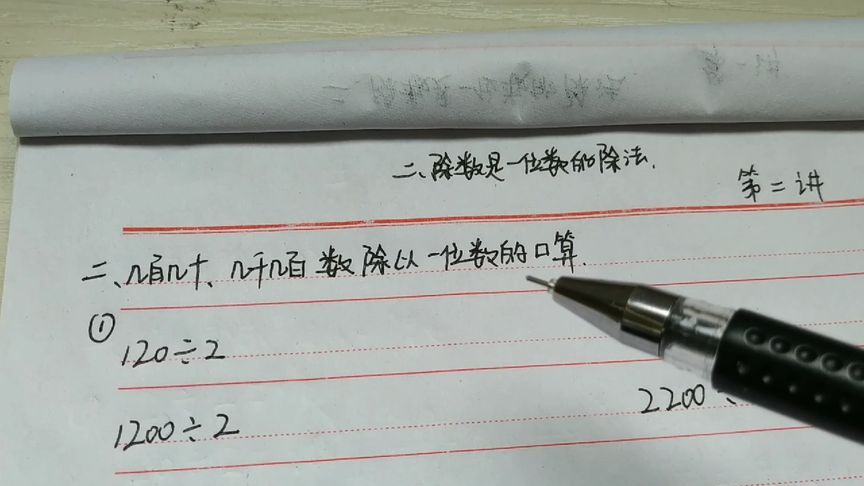 二、除数是一位数的除法.
第二讲
二、几百几十、几千几百数除以一位数的口算.
①
120÷2
1200÷2
2200÷